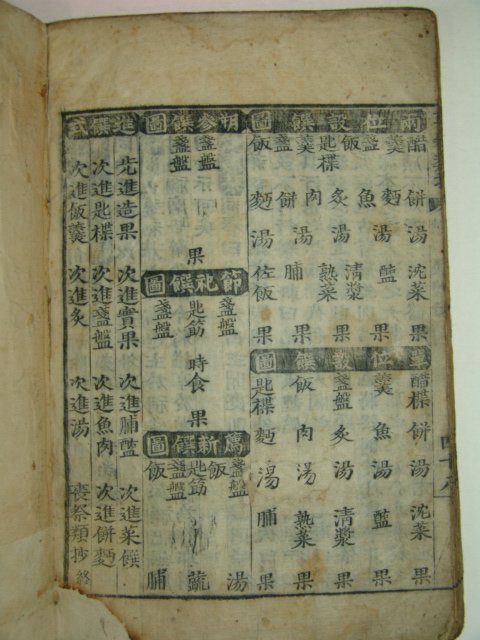 兩位設饌圖
醋 餅 湯 沈菜 果
羹 麵 湯 醢 果
盞盤 魚
飯 炙 湯 清漿 果
匙楪 熟菜
羹 肉 湯
盞盤 餅 脯
飯 麵 湯 佐飯 果
位設饌圖
醋楪 餅 湯 沈菜 果
羹 魚 湯 醢 果
盞盤 炙 湯 清漿 果
飯 肉 湯 熟菜 果
匙楪 麵 湯 脯 果
朔參饌圖
盞盤
果
盞盤
節祀饌圖
盞盤
匙筯 時食 果
盞盤
薦新饌圖
盞盤 湯
飯
匙筯 蔬
盞盤
飯 脯
進饌式
先進造果 次進實果 次進脯醢 次進菜饌
次進匙楪 次進盞盤 次進魚肉 次進餅麵
次進飯羹 次進炙 次進湯 喪祭類抄 終